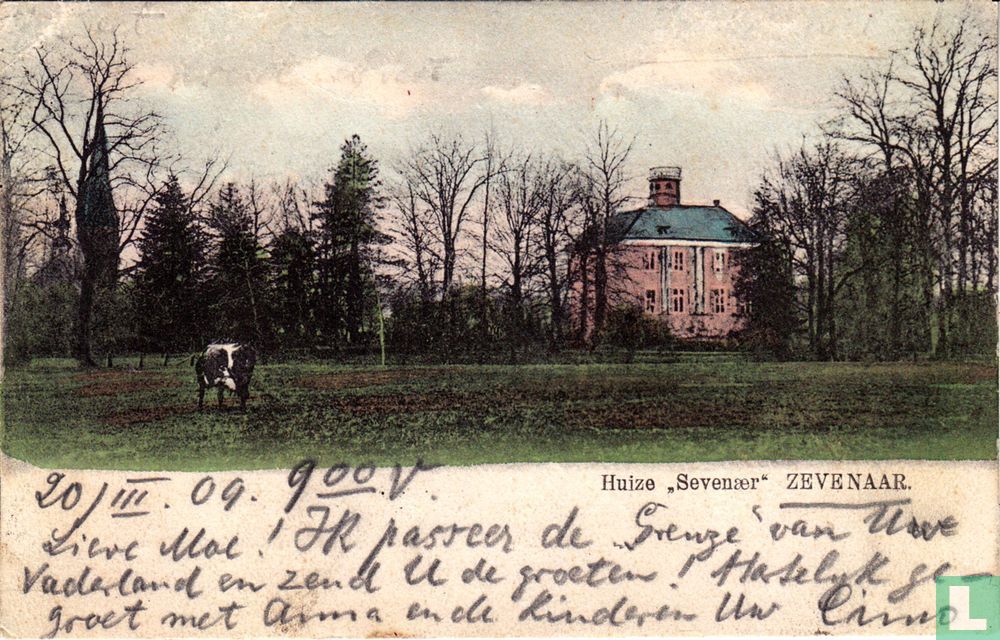 Huize „Sevenær“ ZEVENAAR.
20/III. 09. 900 V
Lieve Moe! Ik passeer de „Grenze“ van Uwe
Vaderland en zend U de groeten! Hartelijk ge-
groet met Anna en de Kinderen Uw
L